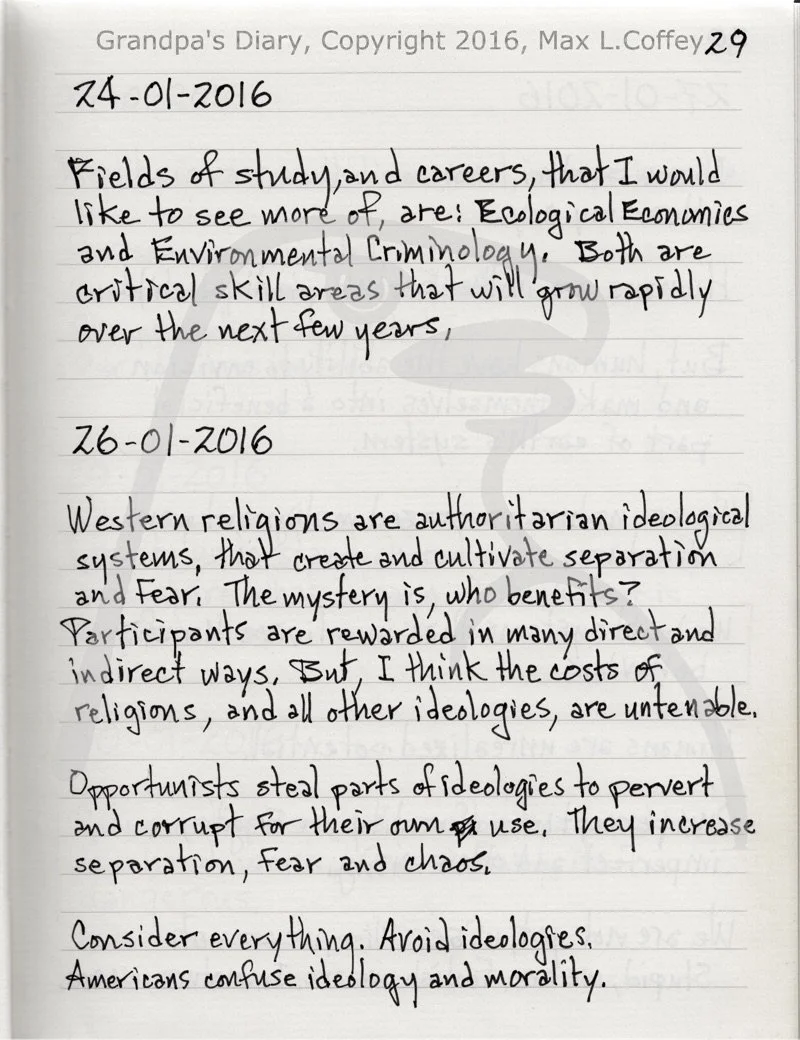 Grandpa's Diary, Copyright 2016, Max L.Coffey 29
24-01-2016
Fields of study, and careers, that I would
like to see more of, are: Ecological Economics
and Environmental Criminology. Both are
critical skill areas that will grow rapidly
over the next few years,
26-01-2016
Western religions are authoritarian ideological
systems, that create and cultivate separation
and Fear. The mystery is, who benefits?
Participants are rewarded in many direct and
indirect ways. But, I think the costs of
religions, and all other ideologies, are untenable.
Opportunists steal parts of ideologies to pervert
and corrupt for their own use. They increase
separation, Fear and chaos.
Consider everything. Avoid ideologies.
Americans confuse ideology and morality.